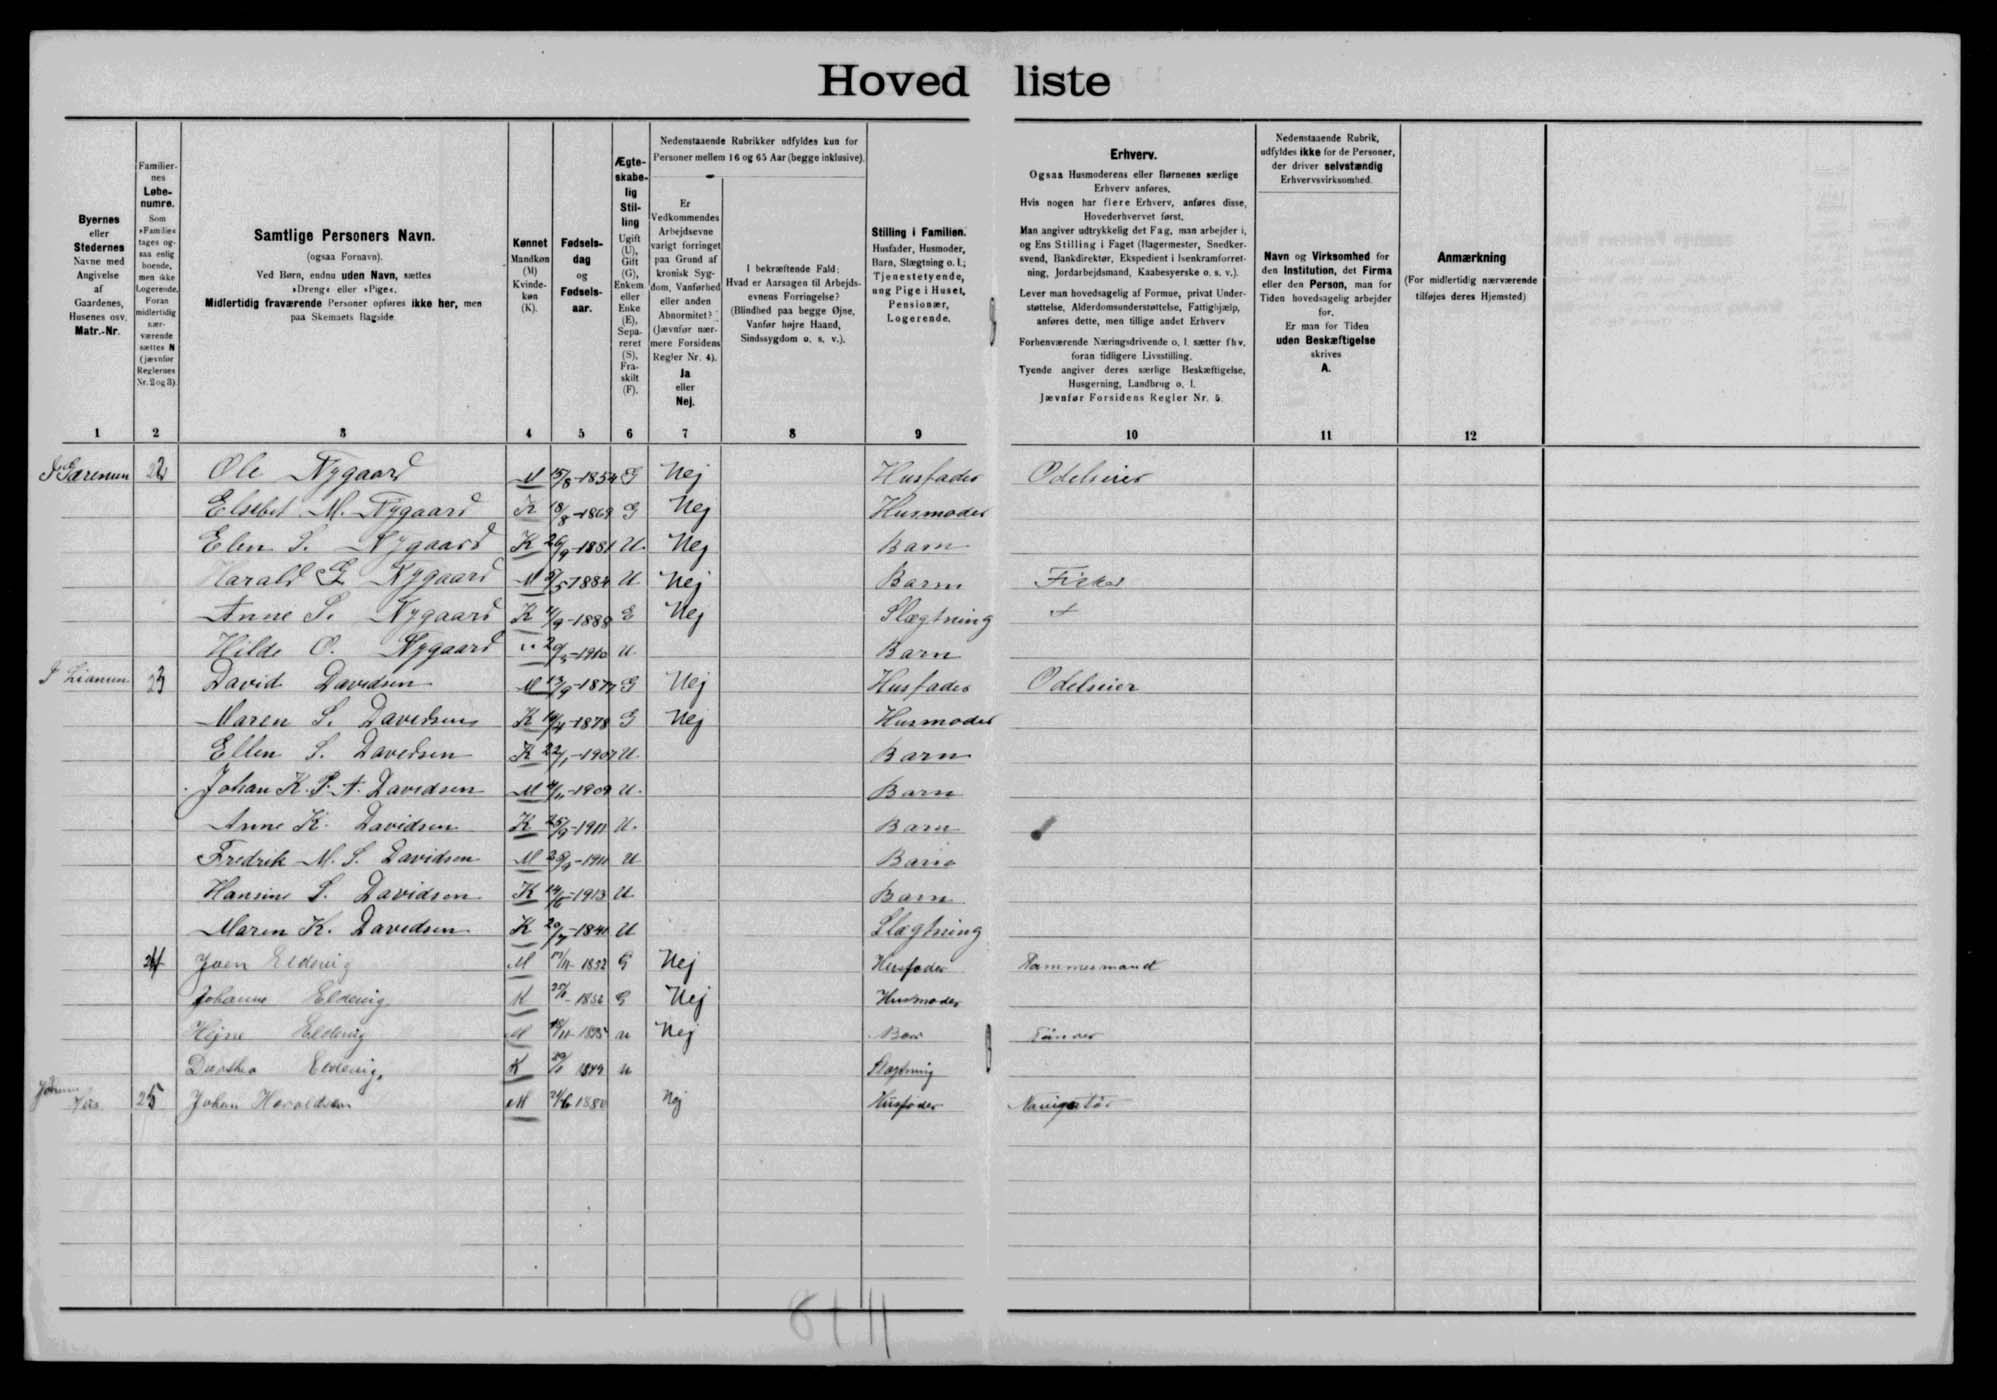 Hovedliste
Byernes
eller
Stedernes
Navne med
Angivelse
af
Gaardenes,
Husenes osv.
Matr.-Nr.
Familier-
nes
Løbe-
numre.
Som
»Familie«
tages og-
saa enlig
boende,
men ikke
Logerende.
Foran
midlertidig
nær-
værende
sættes N
(jævnfør
Reglernes
Nr. 2 og 3).
Samtlige Personers Navn.
(ogsaa Fornavn).
Ved Børn, endnu uden Navn, sættes
»Dreng« eller »Pige«.
Midlertidig fraværende Personer opføres ikke her, men
paa Skemaets Bagside.
Kønnet
Mandkøn
(M)
Kvinde-
køn
(K).
Fødsels-
dag
og
Fødsels-
aar.
Ægte-
skabe-
lig
Stil-
ling
Ugift
(U),
Gift
(G),
Enkem.
eller
Enke
(E),
Sepa-
reret
(S),
Fra-
skilt
(F).
Nedenstaaende Rubrikker udfyldes kun for
Personer mellem 16 og 65 Aar (begge inklusive).
Er
Vedkommendes
Arbejdsevne
varigt forringet
paa Grund af
kronisk Syg-
dom, Vanførhed
eller anden
Abnormitet?
(Jævnfør nær-
mere Forsidens
Regler Nr. 4).
Ja
eller
Nej.
I bekræftende Fald:
Hvad er Aarsagen til Arbejds-
evnens Forringelse?
(Blindhed paa begge Øjne,
Vanfør højre Haand,
Sindssygdom o. s. v.).
Stilling i Familien.
Husfader, Husmoder,
Barn, Slægtning o. l.;
Tjenestetyende,
ung Pige i Huset,
Pensionær,
Logerende.
Erhverv.
Ogsaa Husmoderens eller Børnenes særlige
Erhverv anføres.
Hvis nogen har flere Erhverv, anføres disse,
Hovederhvervet først.
Man angiver udtrykkelig det Fag, man arbejder i,
og Ens Stilling i Faget (Bagermester, Snedker-
svend, Bankdirektør, Ekspedient i Isenkramforret-
ning, Jordarbejdsmand, Kaabesyerske o. s. v.).
Lever man hovedsagelig af Formue, privat Under-
støttelse, Alderdomsunderstøttelse, Fattighjælp,
anføres dette, men tillige andet Erhverv
Forhenværende Næringsdrivende o. l. sætter fhv.
foran tidligere Livsstilling.
Tyende angiver deres særlige Beskæftigelse,
Husgerning, Landbrug o. l.
Jævnfør Forsidens Regler Nr. 5.
Nedenstaaende Rubrik,
udfyldes ikke for de Personer,
der driver selvstændig
Erhvervsvirksomhed.
Navn og Virksomhed for
den Institution, det Firma
eller den Person, man for
Tiden hovedsagelig arbejder
for.
Er man for Tiden
uden Beskæftigelse
skrives
A.
Anmærkning
(For midlertidig nærværende
tilføjes deres Hjemsted)
1 2 3 4 5 6 7 8 9 10 11 12
22 Ole Nygaard M 15/8-1854 G Nej Husfader Odelseier
Elsebet M. Nygaard K 18/8-1869 G Nej Husmoder
Elen S. Nygaard K 26/9-1881 U. Nej Barn
Harald G Nygaard M 1884 U Nej Barn Fisker
Anne S. Nygaard K 1888 E Nej Slægtning
Hilde O. Nygaard 1910 U. Barn
23 David Davidsen M 1877 G Nej Husfader Odelseier
Maren S. Davidsen K 1878 G Nej Husmoder
Ellen S. Davidsen K 22/1-1907 U. Barn
Johan K. P. A. Davidsen M 1909 U. Barn
Anne K. Davidsen K 25/9-1911 U. Barn
Fredrik M. S. Davidsen M 1911 U Barn
Hansine S. Davidsen K 1913 U Barn
Maren K. Davidsen K 20/7-1841 U Slægtning
24 Joen Eldevig M 1852 G Nej Husfader
Johanne Eldevig K 1852 G Nej Husmoder
Eldevig M 1895 u Nej Barn
Dorthea Eldevig K 1849 u Slægtning
25 Johan Haraldsen M 24/6 1880 Nej Husfader Navigatør